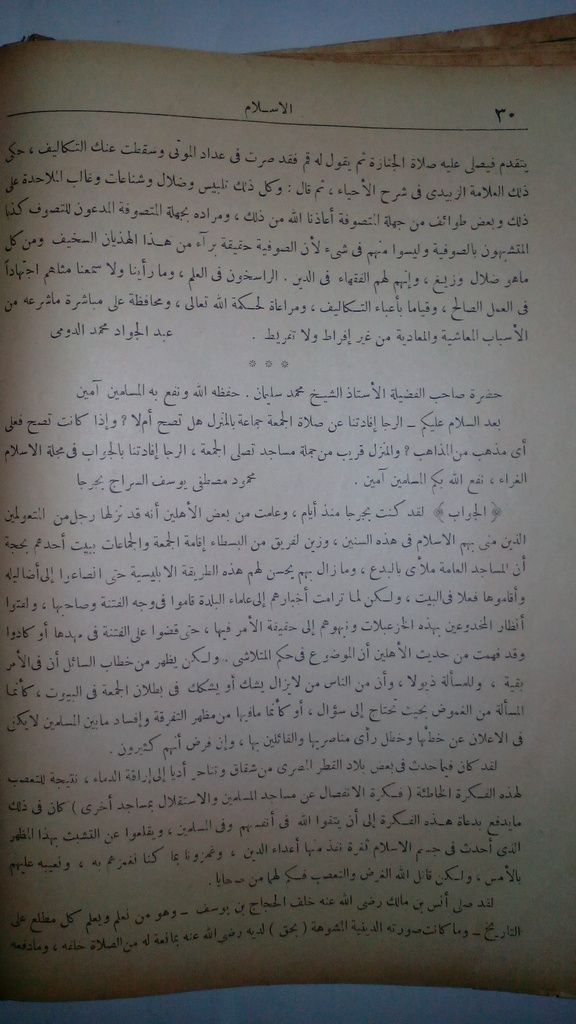 ٣٠
الاسلام
يتقدم فيصلى عليه صلاة الجنازة ثم يقول له قم فقد صرت فى عداد الموتى وسقطت عنك التكاليف ، حكى
ذلك العلامة الزبيدى فى شرح الأحياء ، ثم قال : وكل ذلك تلبيس وضلال وشناعات وغالب الملاحدة على
ذلك وبعض طوائف من جهلة المتصوفة أعاذنا الله من ذلك ، ومراده بجهلة المتصوفة المدعون للتصوف كذبا
المتشبهون بالصوفية وليسوا منهم فى شىء لأن الصوفية حقيقة برآء من هـذا الهذيان السخيف ومن كل
ماهو ضلال وزيغ ، وإنهم لهم الفقهاء فى الدين . الراسخون فى العلم ، وما رأينا ولا سمعنا مثلهم اجتهاداً
فى العمل الصالح ، وقياما بأعباء التكاليف ، ومراعاة لحكمة الله تعالى ، ومحافظة على مباشرة ماشرعه من
الأسباب المعاشية والمعادية من غير إفراط ولا تفريط . عبد الجواد محمد الدومى
* * *
حضرة صاحب الفضيلة الأستاذ الشيخ محمد سليمان . حفظه الله ونفع به المسلمين آمين
بعد السلام عليكم ـ الرجا إفادتنا عن صلاة الجمعة جماعة بالمنزل هل تصح أم لا ؟ وإذا كانت تصح فعلى
أى مذهب من المذاهب ؟ والمنزل قريب من جملة مساجد تصلى الجمعة ، الرجا إفادتنا بالجواب فى مجلة الاسلام
الغراء ، نفع الله بكم المسلمين آمين . محمود مصطفى يوسف السراج بجرجا
﴿ الجواب ﴾ لقد كنت بجرجا منذ أيام ، وعلمت من بعض الأهلين أنه قد نزلها رجل من المتعولمين
الذين منى بهم الاسلام فى هذه السنين ، وزين لفريق من البسطاء إقامة الجمعة والجماعات ببيت أحدهم بحجة
أن المساجد العامة ملأى بالبدع ، وما زال بهم يحسن لهم هذه الطريقة الابليسية حتى انصاعوا إلى أضاليله
وأقاموها فعلا فى البيت ، ولـكن لما ترامت أخبارهم إلى علماء البلدة قاموا فى وجه الفتنة وصاحبها ، ولفتوا
أنظار المخدوعين بهذه الخزعبلات ونبهوهم إلى حقيقة الأمر فيها ، حتى قضوا على الفتنة فى مهدها أو كادوا
وقد فهمت من حديث الأهلين أن الموضوع فى حكم المتلاشى .. ولـكن يظهر من خطاب السائل أن فى الأمر
بقية ، وللمسألة ذيولا ، وأن من الناس من لا يزال يشك أو يشكك فى بطلان الجمعة فى البيوت ، كأنما
المسألة من الغموض بحيث تحتاج إلى سؤال ، أو كأنما مافيها من مظهر التفرقة وإفساد ما بين المسلمين لا يكفى
فى الاعلان عن خطئها وخطل رأى مناصريها والقائلين بها ، وإن فرض أنهم كثيرون .
لقد كان فيما حدث فى بعض بلاد القطر المصرى من شقاق وتناحر أديا إلى إراقة الدماء ، نتيجة للتعصب
لهذه الفـكرة الخاطئة ( فـكرة الانفصال عن مساجد المسلمين والاستقلال بمساجد أخرى ) كان فى ذلك
مايدفع بدعاة هـذه الفـكرة إلى أن يتقوا الله فى أنفسهم وفى المسلمين ، ويقلعوا عن التشبث بهذا المظهر
الذى أحدث فى جسم الاسلام ثغرة نفذ منها أعداء الدين ، وغمزونا بما كنا نغمزهم به ، ونعيبه عليهم
بالأمس ، ولـكن قاتل الله الغرض والتعصب فكم لهما من ضحايا .
لقد صلى أنس بن مالك رضى الله عنه خلف الحجاج بن يوسف ـ وهو من نعلم ويعلم كل مطلع على
التاريخ ـ وما كانت صورته الدينية المشوهة ( بحق ) لديه رضى الله عنه بمانعة له من الصلاة خلفه ، ومادفعه